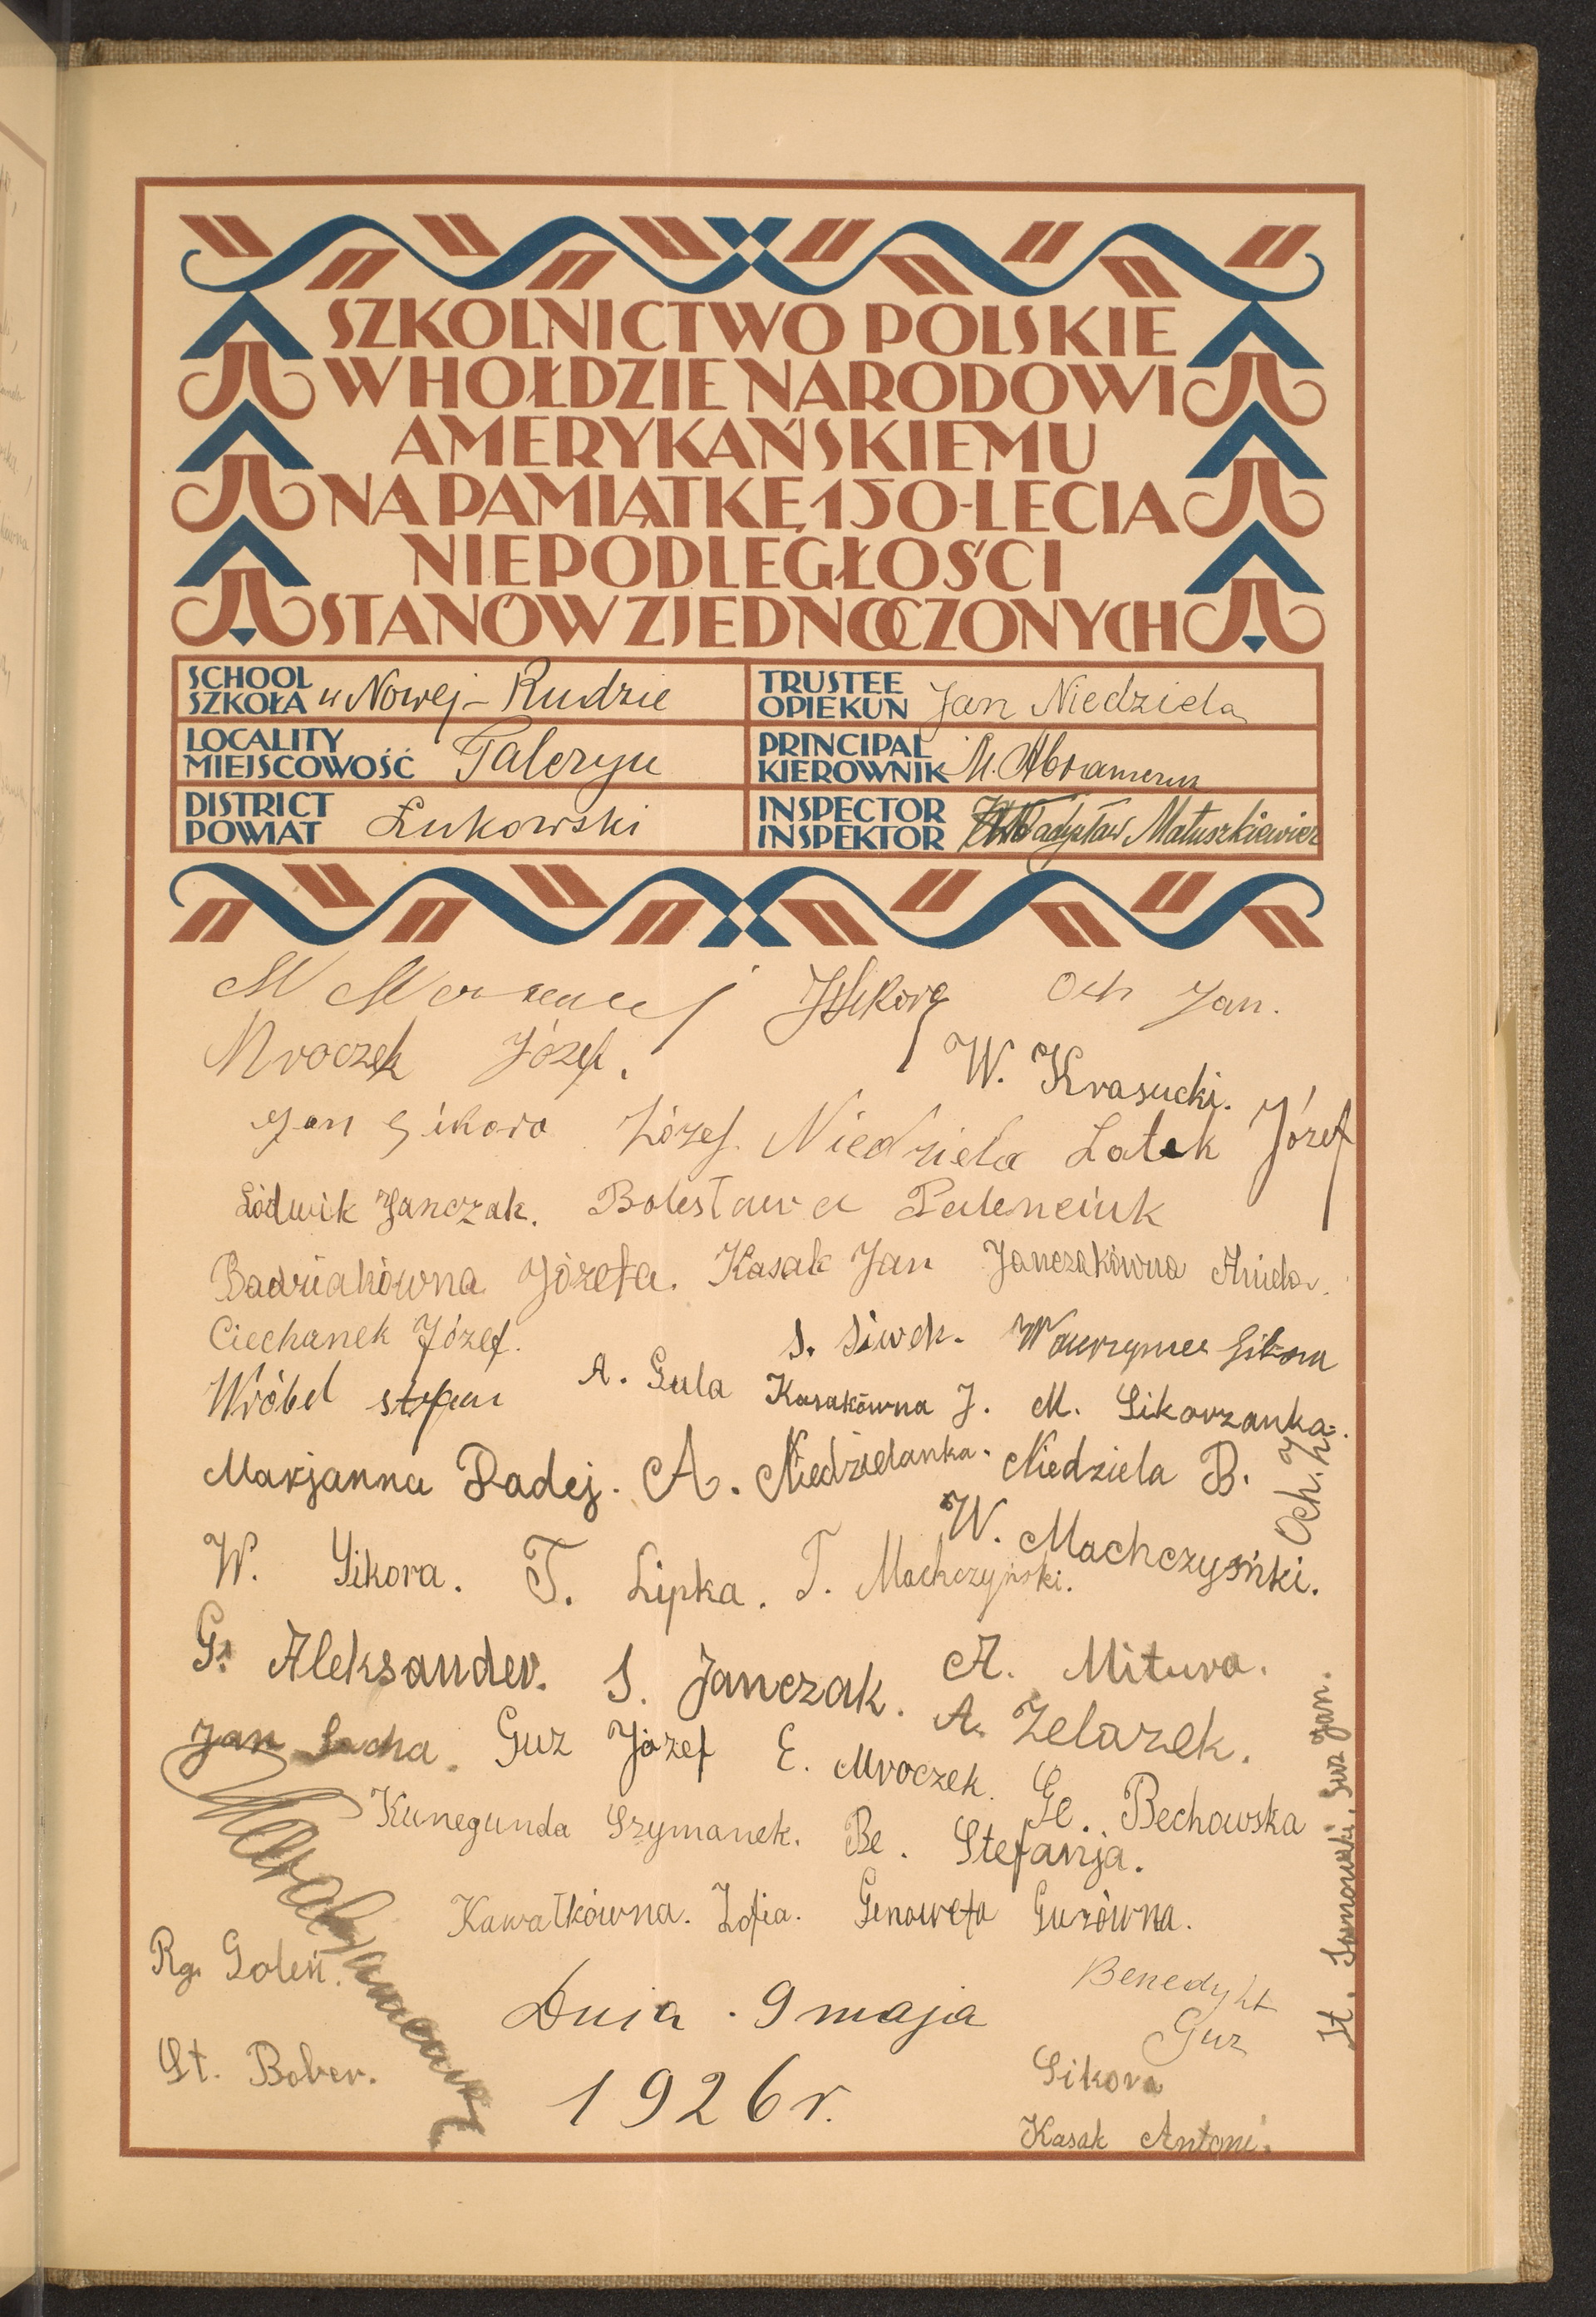 SZKOLNICTWO POLSKIE
W HOŁDZIE NARODOWI
AMERYKAŃSKIEMU
NA PAMIĄTKĘ 150-LECIA
NIEPODLEGŁOŚCI
STANÓW ZJEDNOCZONYCH
SCHOOL
SZKOŁA w Nowej-Rudzie
TRUSTEE
OPIEKUN Jan Niedziela
LOCALITY
MIEJSCOWOŚĆ
PRINCIPAL
KIEROWNIK M.
DISTRICT
POWIAT Łukowski
INSPECTOR
INSPEKTOR Władysław Matuszkiewicz
M J Sikora Och Jan.
Mroczek Józef.
W. Krasucki.
Jan Sikora Józef Niedziela Latek Józef
Lódwik Janczak. Bolesława
Badziakówna Józefa. Kasak Jan Janczakówna Aniela.
Ciechanek Józef. S. Siwek. Wawrzyniec
Wróbel stefan A. Gula Kasakówna J. M. Sikorzanka.
Marjanna Radej. A. Niedzielanka. Niedziela B.
Och. Z.
W. Machczyśńki.
W. Sikora. T. Lipka. T. Machczyński.
G. Aleksander. S. Janczak. A. Mitura.
Jan Socha. Guz Józef E. Mroczek. A. Zelazek.
Kunegunda Szymanek. Ge. Bechowska
Be. Stefanja.
Kawałkówna. Zofia. Genowefa Guzówna.
Rg. Goleń.
Dnia 9 maja
Benedykt
Guz
St. Bober.
1926 r.
Sikora
Kasak Antoni.
St. Guz Jan.